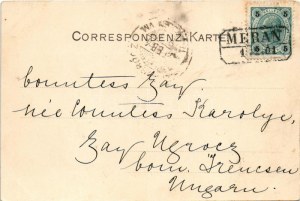 CORRESPONDENZ-KARTE
5 5
MERAN
Countess Zay.
née Countess Karolyi,
Zay Ugrocz
com. Trencsen
Ungarn.